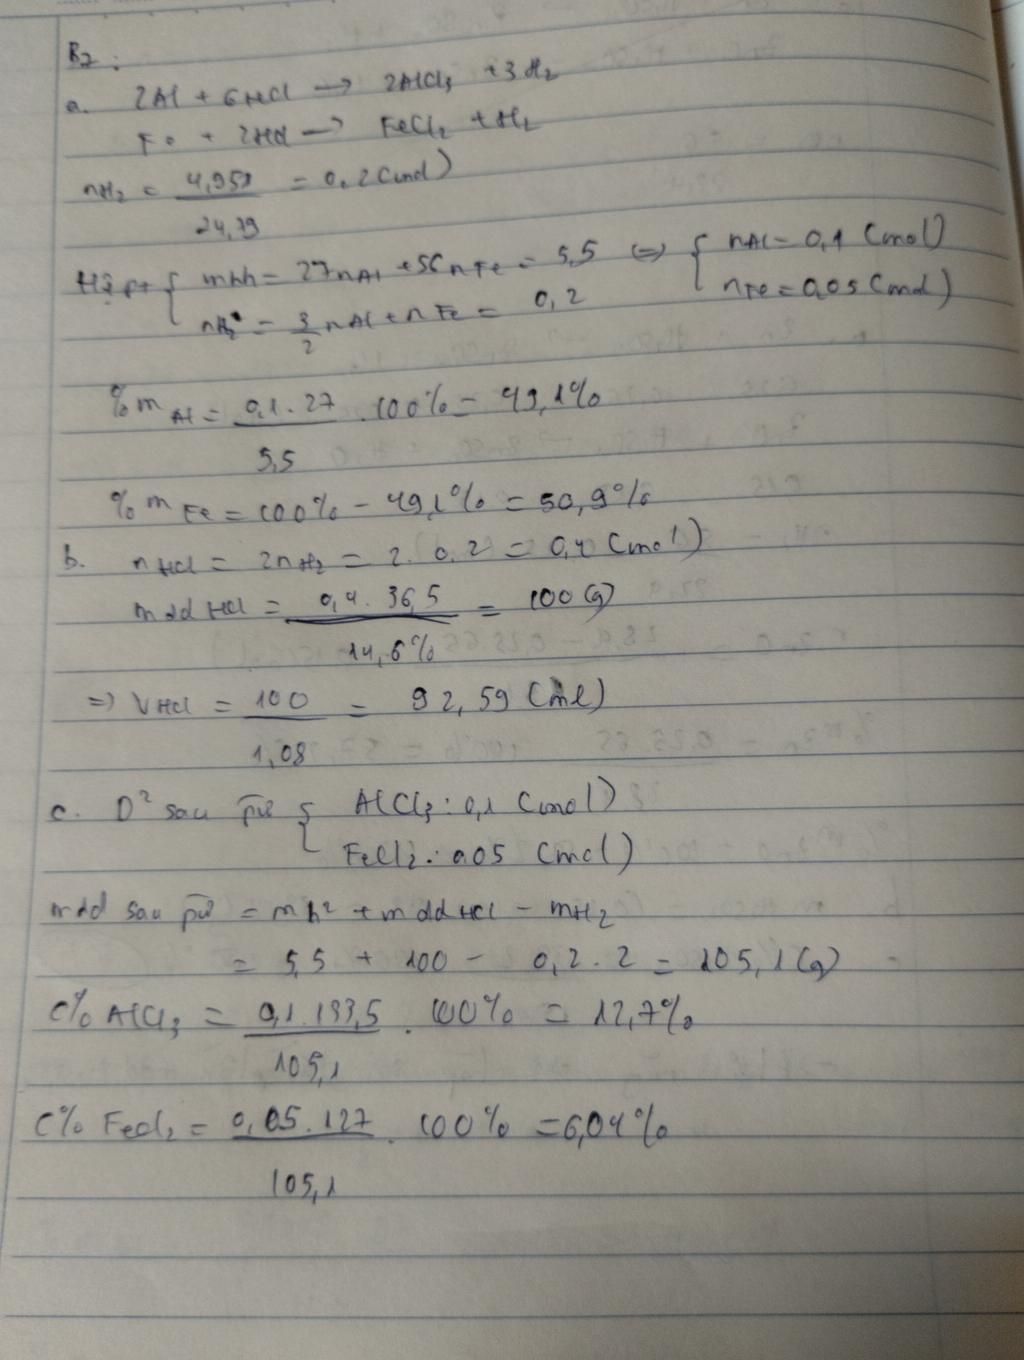 B2:
a. 2Al + 6HCl → 2AlCl3 + 3H2
Fe + 2HCl → FeCl2 + H2
nH2 = 4,958 / 24,79 = 0,2 (mol)
Hệ pt { mhh = 27nAl + 56nFe = 5,5 ⇔ { nAl = 0,1 (mol)
nH2 = 3/2 nAl + nFe = 0,2 nFe = 0,05 (mol)
%mAl = 0,1.27 / 5,5 . 100% = 49,1%
%mFe = 100% - 49,1% = 50,9%
b. nHCl = 2nH2 = 2.0,2 = 0,4 (mol)
mdd HCl = 0,4.36,5 / 14,6% = 100 (g)
⇒ VHCl = 100 / 1,08 = 92,59 (ml)
c. D² sau pư { AlCl3: 0,1 (mol)
FeCl2: 0,05 (mol)
mdd sau pư = mh² + mddHCl - mH2
= 5,5 + 100 - 0,2.2 = 105,1 (g)
C% AlCl3 = 0,1.133,5 / 105,1 . 100% = 12,7%
C% FeCl2 = 0,05.127 / 105,1 . 100% = 6,04%